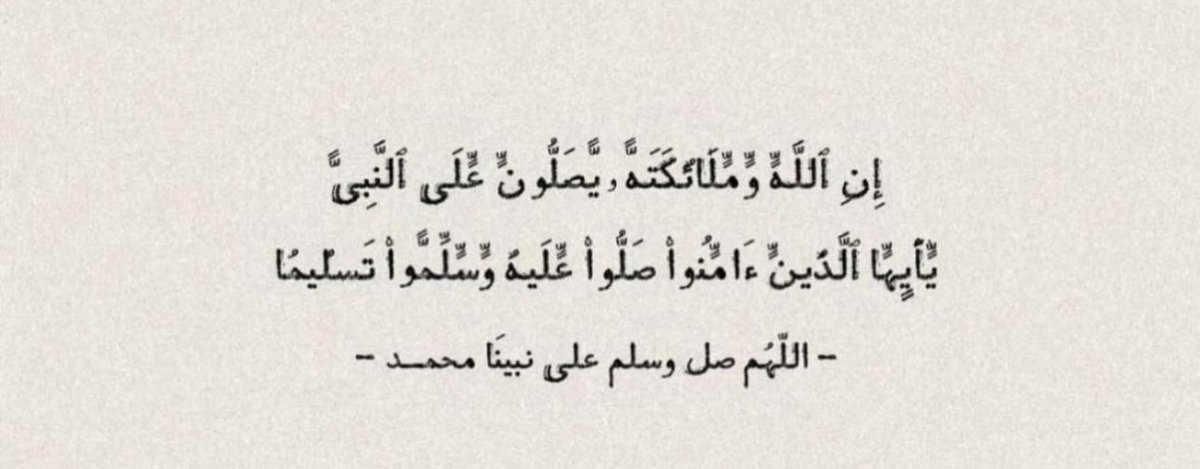 إِنِ ٱللَّهٍَّ وٍَّمٍَّلَائكَتَهًَّۥ يًَّصَلُّونٍَّ عٍَّلَى ٱلنَّبِىًَّ
يٍَّأَيٍُهًَّا ٱلَّذَينٍَّ ءَامٍَّنُوا۟ صَلُّوا۟ عٍَّلَيهُ وٍَّسٍَّلِّمًُّوا۟ تَسلَيمًا
- اللّهُم صل وسلم على نبينَا محمـد -